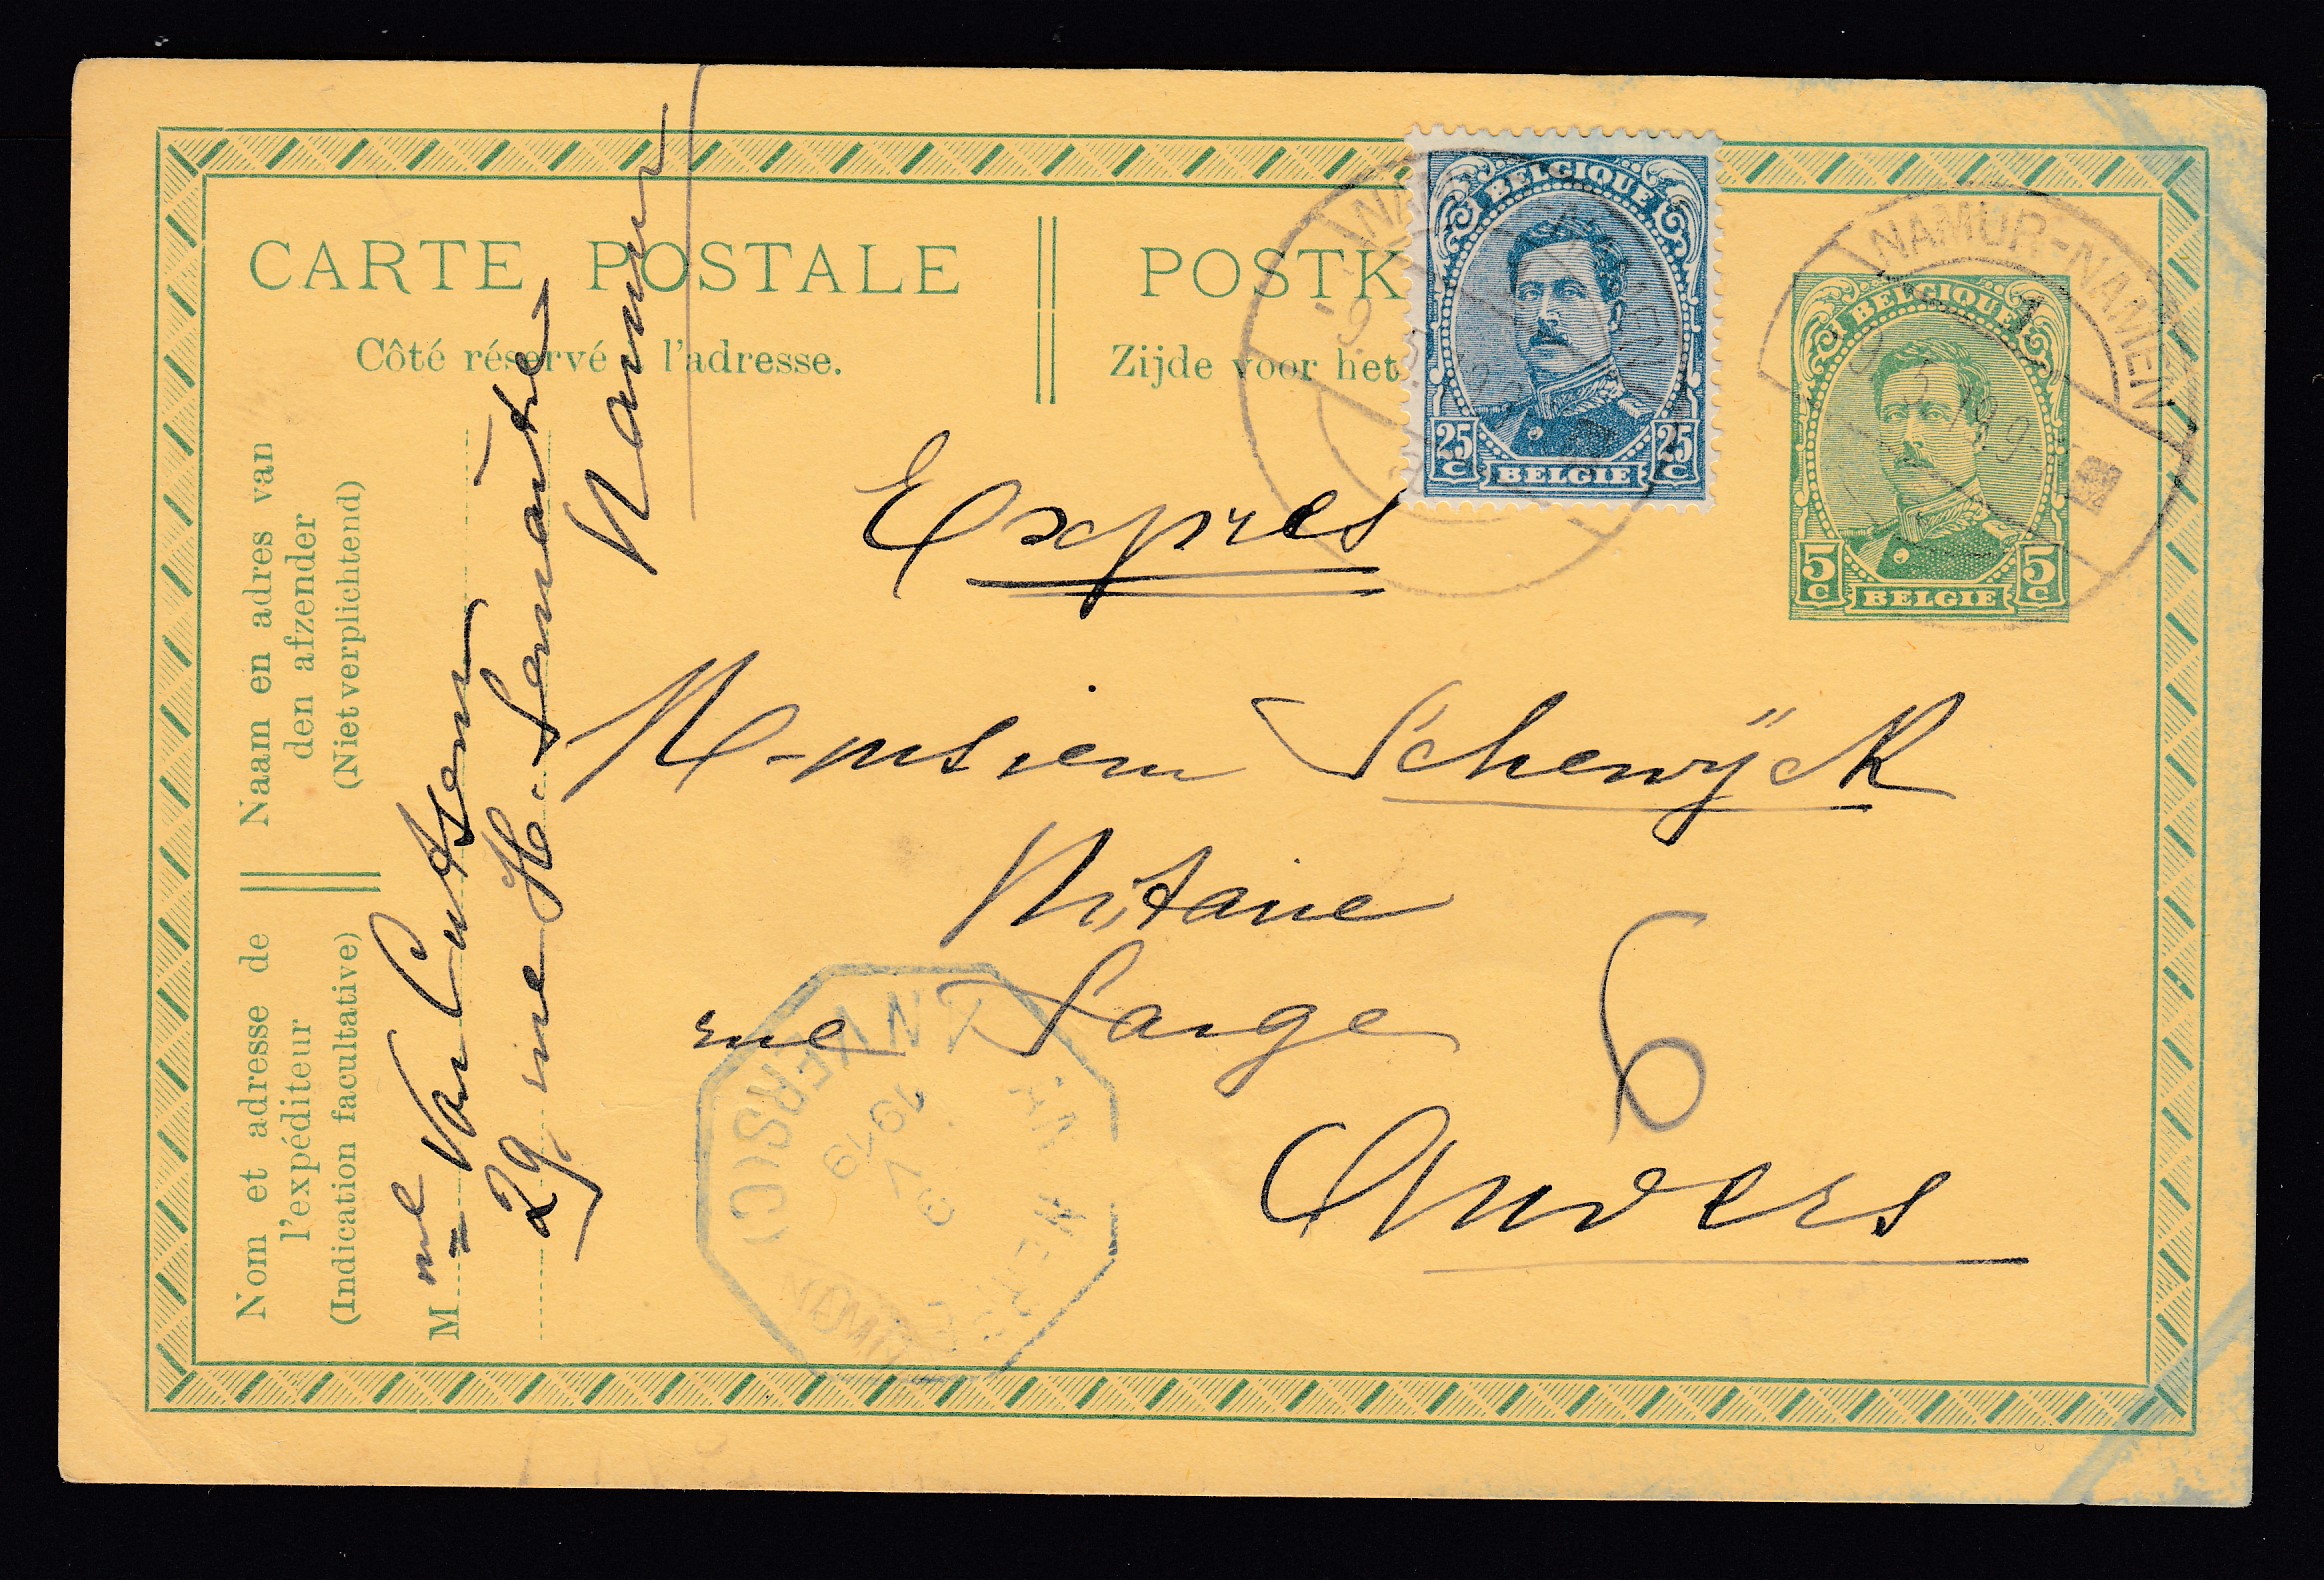 CARTE POSTALE
Côté réservé l'adresse.
POSTK
Zijde voor het
BELGIQUE
25 C 25 C
BELGIE
NAMUR-NAMEN
1
BELGIQUE
5 C 5 C
BELGIE
Expres
Monsieur Schewÿck
Notaire
rue Large
6
Anvers
ANVERS (C)
9 V
1919
Naam en adres van
den afzender
(Niet verplichtend)
Nom et adresse de
l'expéditeur
(Indication facultative)
M me Van Cutsem
29 rue H. Lemaitre
Namur